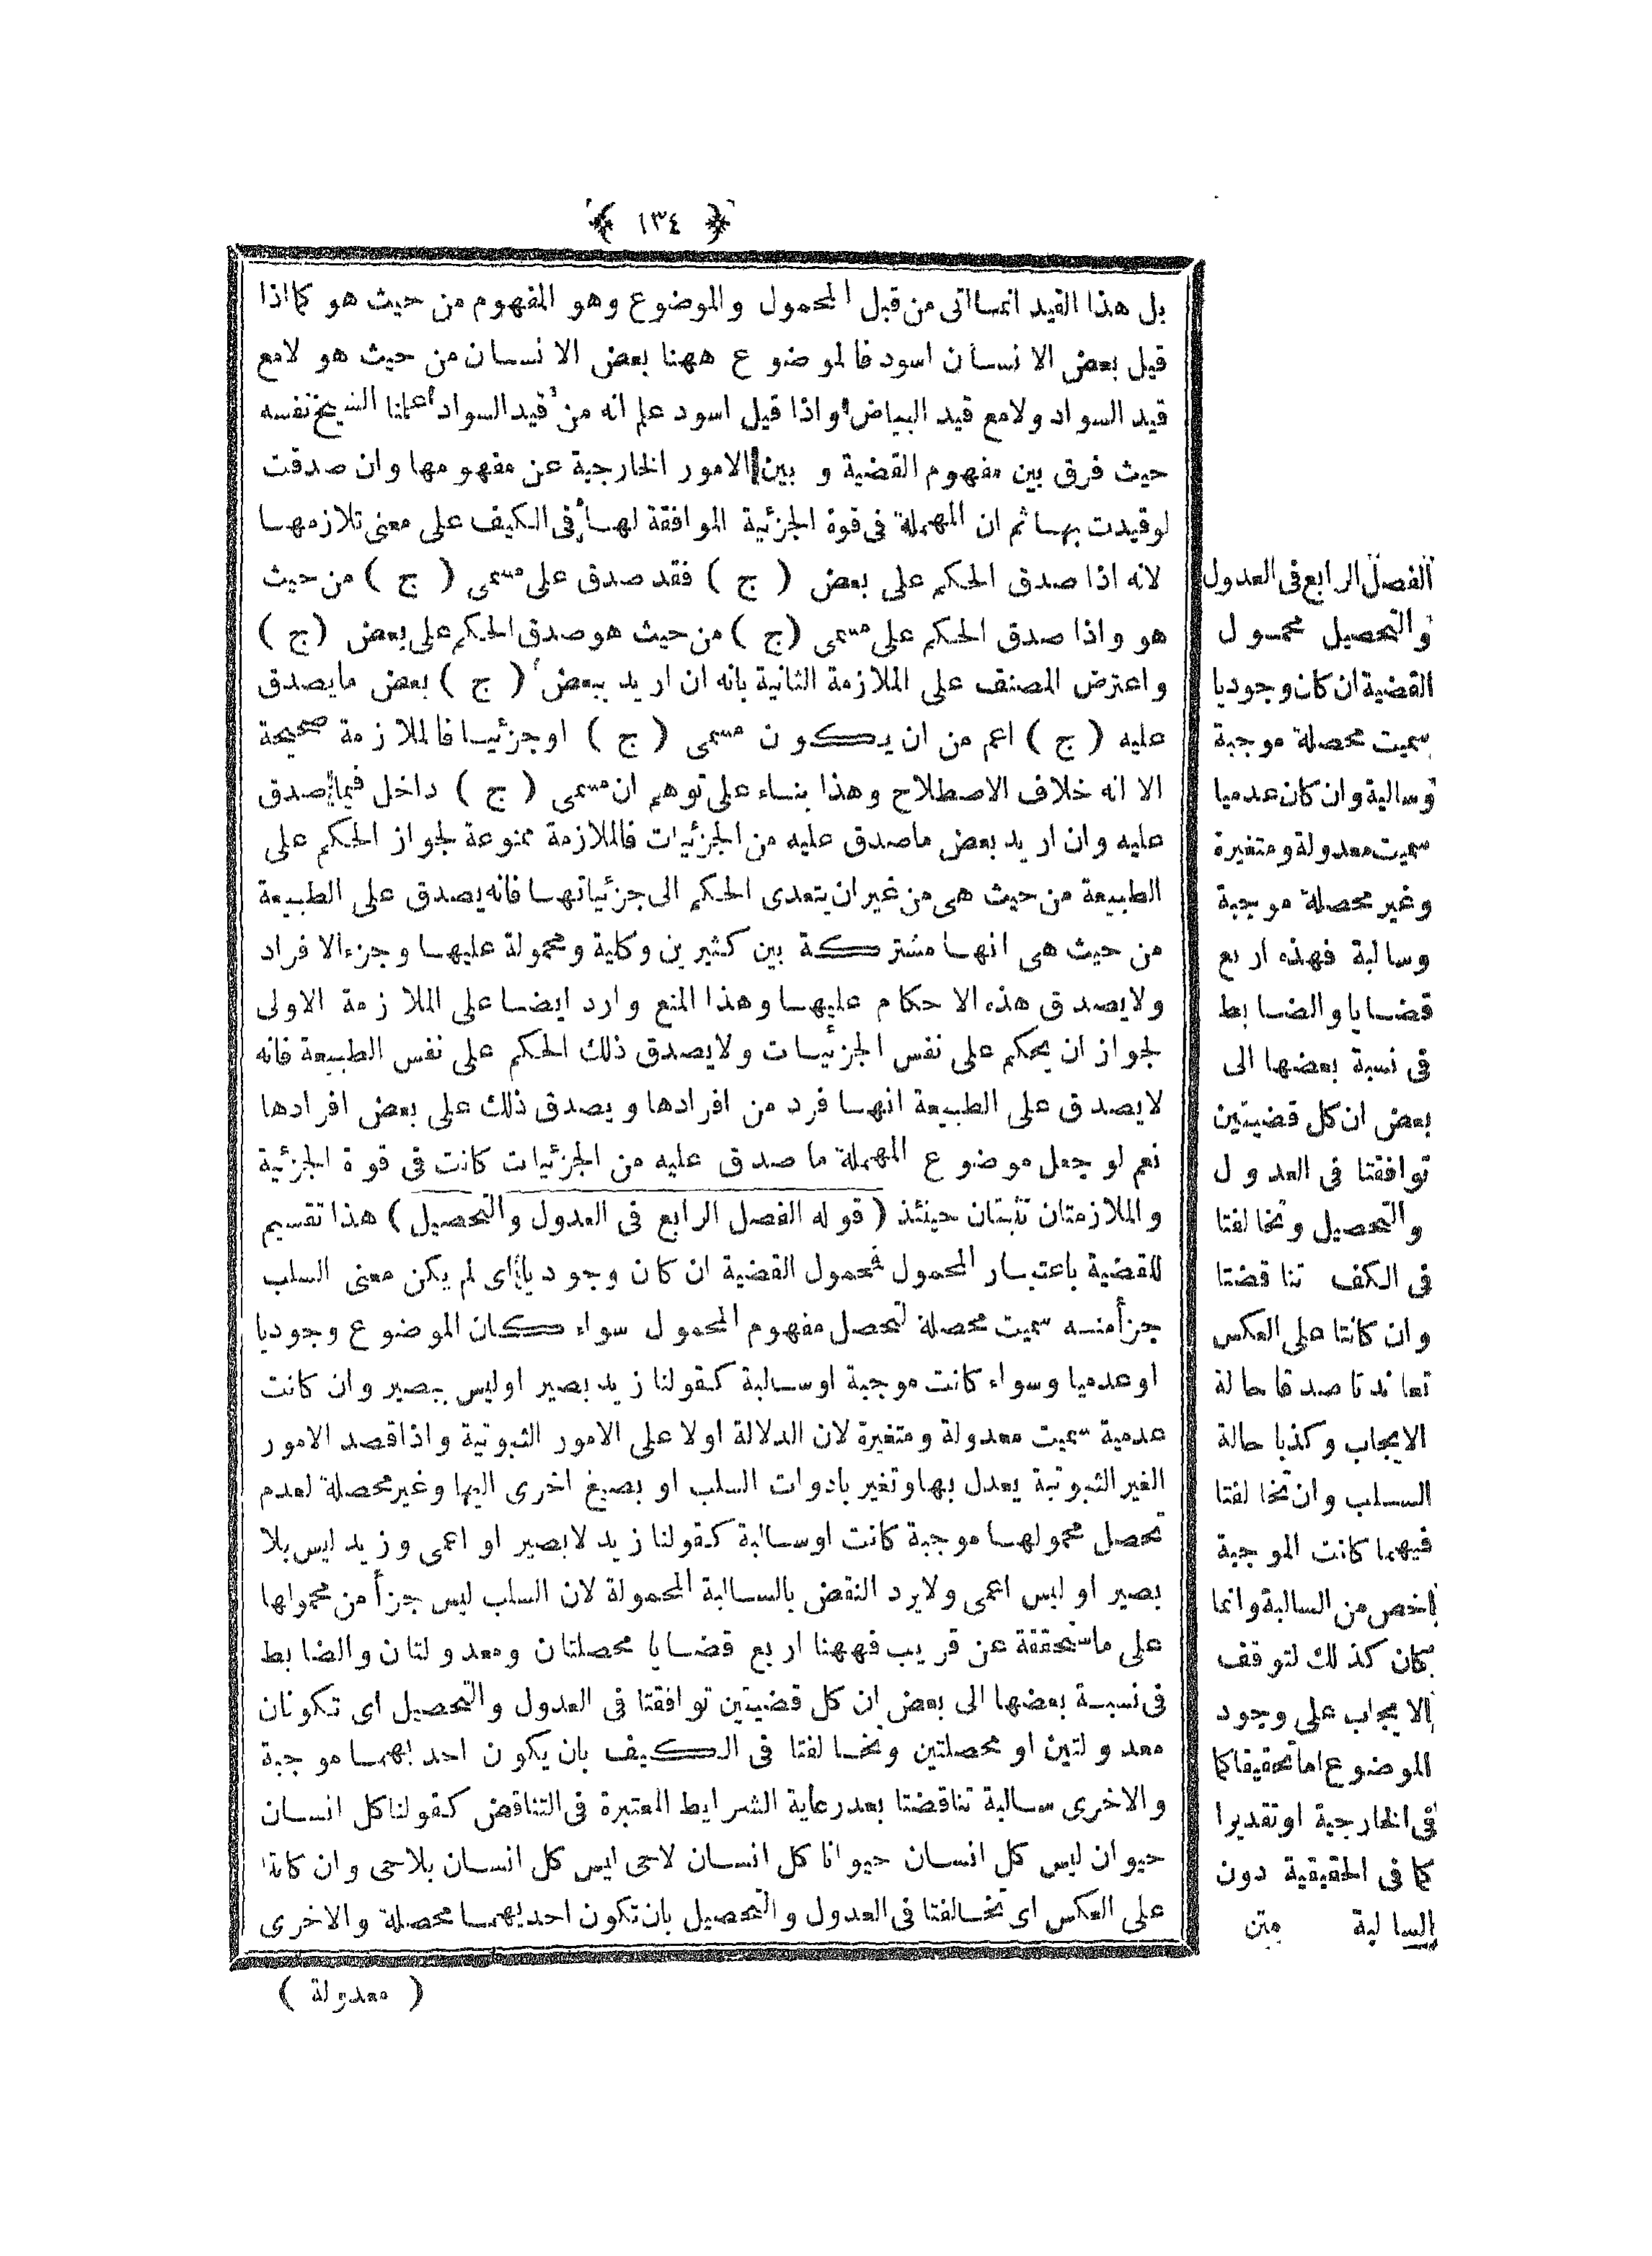 ﴿ ١٣٤ ﴾
بل هذا القيد انما اتى من قبل المحمول والموضوع وهو المفهوم من حيث هو كما اذا
قيل بعض الانسان اسود فالموضوع ههنا بعض الانسان من حيث هو لامع
قيد السواد ولامع قيد البياض واذا قيل اسود علم انه من قيد السواد اعلمنا الشيخ نفسه
حيث فرق بين مفهوم القضية و بين الامور الخارجية عن مفهومها وان صدقت
لوقيدت بها ثم ان المهملة فى قوة الجزئية الموافقة لها فى الكيف على معنى تلازمهما
لانه اذا صدق الحكم على بعض ( ج ) فقد صدق على مسمى ( ج ) من حيث
هو واذا صدق الحكم على مسمى ( ج ) من حيث هو صدق الحكم على بعض ( ج )
واعترض المصنف على الملازمة الثانية بانه ان اريد ببعض ( ج ) بعض مايصدق
عليه ( ج ) اعم من ان يكون مسمى ( ج ) اوجزئيا فالملازمة صحيحة
الا انه خلاف الاصطلاح وهذا بناء على توهم ان مسمى ( ج ) داخل فيما صدق
عليه وان اريد بعض ماصدق عليه من الجزئيات فالملازمة ممنوعة لجواز الحكم على
الطبيعة من حيث هى من غير ان يتعدى الحكم الى جزئياتها فانه يصدق على الطبيعة
من حيث هى انها مشتركة بين كثيرين وكلية ومحمولة عليها وجزء الافراد
ولايصدق هذه الاحكام عليها وهذا المنع وارد ايضا على الملازمة الاولى
لجواز ان يحكم على نفس الجزئيات ولايصدق ذلك الحكم على نفس الطبيعة فانه
لايصدق على الطبيعة انها فرد من افرادها ويصدق ذلك على بعض افرادها
نعم لو جعل موضوع المهملة ماصدق عليه من الجزئيات كانت فى قوة الجزئية
والملازمتان تثبتان حينئذ ( قوله الفصل الرابع فى العدول والتحصيل ) هذا تقسيم
للقضية باعتبار المحمول فمحمول القضية ان كان وجوديا اى لم يكن معنى السلب
جزأ منه سميت محصلة لتحصل مفهوم المحمول سواء كان الموضوع وجوديا
اوعدميا وسواء كانت موجبة اوسالبة كقولنا زيد بصير اوليس ببصير وان كانت
عدمية سميت معدولة ومتغيرة لان الدلالة اولا على الامور الثبوتية واذا قصد الامور
الغير الثبوتية يعدل بها وتغير بادوات السلب او بصيغ اخرى اليها وغير محصلة لعدم
تحصل محمولها موجبة كانت اوسالبة كقولنا زيد لابصير او اعمى وزيد ليس بلا
بصير او ليس اعمى ولايرد النقض بالسالبة المحمولة لان السلب ليس جزأ من محمولها
على ماستحققة عن قريب فههنا اربع قضايا محصلتان ومعدولتان والضابط
فى نسبة بعضها الى بعض ان كل قضيتين توافقتا فى العدول والتحصيل اى تكونان
معدولتين او محصلتين وتخالفتا فى الكيف بان يكون احديهما موجبة
والاخرى سالبة تناقضتا بعد رعاية الشرايط المعتبرة فى التناقض كقولنا كل انسان
حيوان ليس كل انسان حيوانا كل انسان لاحى ليس كل انسان بلاحى وان كانتا
على العكس اى تخالفتا فى العدول والتحصيل بان تكون احديهما محصلة والاخرى
( معدولة )
الفصل الرابع فى العدول
والتحصيل محمول
القضية ان كان وجوديا
سميت محصلة موجبة
وسالبة وان كان عدميا
سميت معدولة ومتغيرة
وغير محصلة موجبة
وسالبة فهذه اربع
قضايا والضابط
فى نسبة بعضها الى
بعض ان كل قضيتين
توافقتا فى العدول
والتحصيل وتخالفتا
فى الكف تناقضتا
وان كانتا على العكس
تعاندتا صدقا حالة
الايجاب وكذبا حالة
السلب وان تخالفتا
فيهما كانت الموجبة
اخص من السالبة وانما
كان كذلك لتوقف
الايجاب على وجود
الموضوع اما تحقيقا كما
فى الخارجية اوتقديرا
كما فى الحقيقية دون
السالبة متن